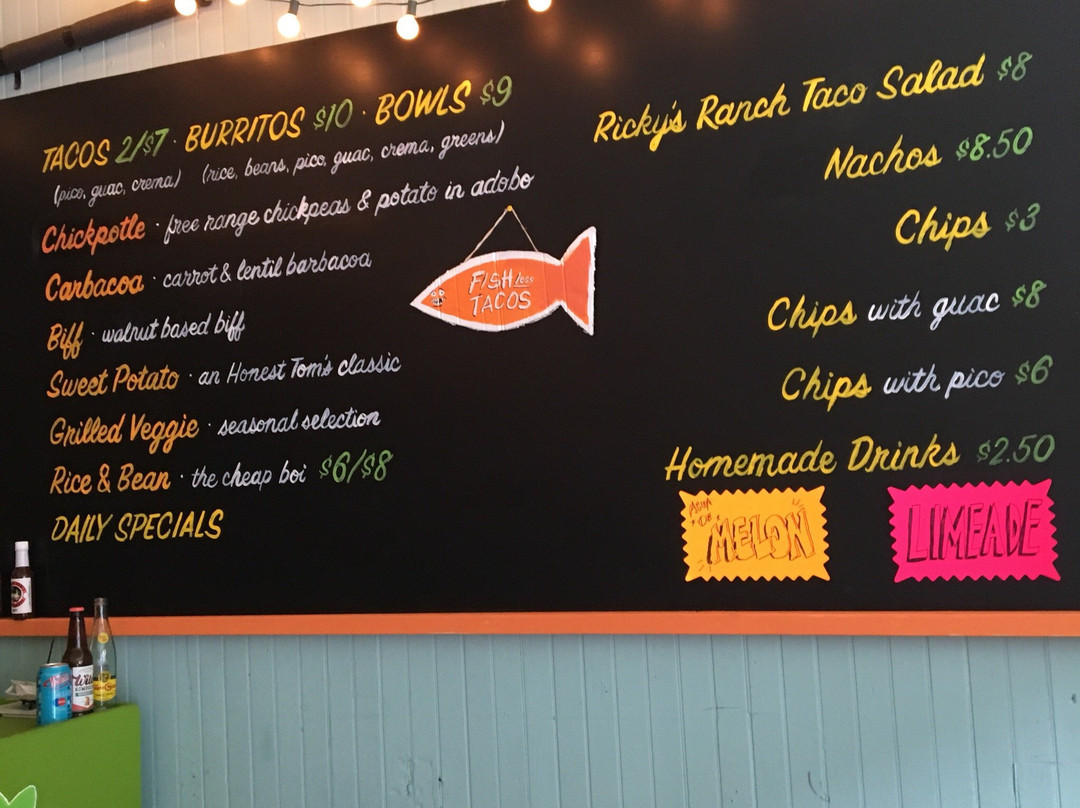 TACOS 2/$7 · BURRITOS $10 · BOWLS $9
(pico, guac, crema) (rice, beans, pico, guac, crema, greens)
Chickpotle · free range chickpeas & potato in adobo
Carbacoa · carrot & lentil barbacoa
Biff · walnut based biff
Sweet Potato · an Honest Tom's classic
Grilled Veggie · seasonal selection
Rice & Bean · the cheap boi $6/$8
DAILY SPECIALS
FISH less
TACOS
Ricky's Ranch Taco Salad $8
Nachos $8.50
Chips $3
Chips with guac $8
Chips with pico $6
Homemade Drinks $2.50
MELON
LIMEADE